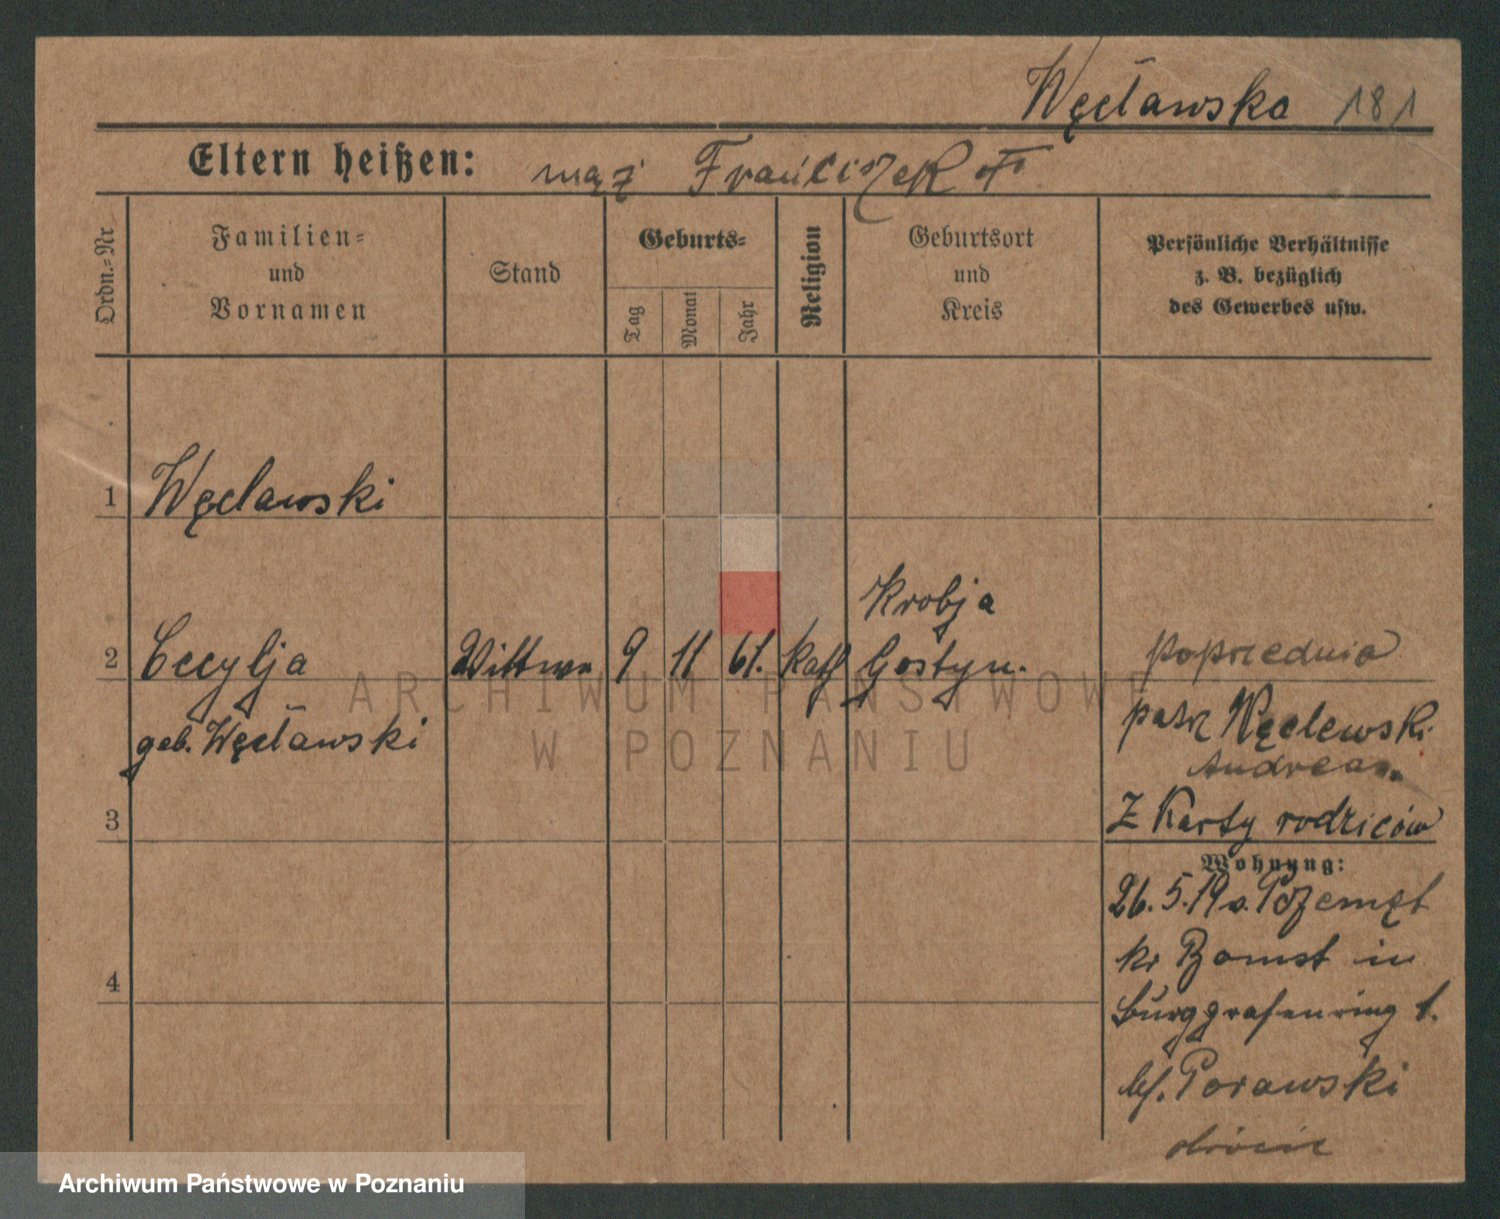 Węcławska 181
Eltern heißen: mąż Franciszek
Ordn.-Nr
Familien-
und
Vornamen
Stand
Geburts-
Tag
Monat
Jahr
Religion
Geburtsort
und
Kreis
Persönliche Verhältnisse
z. B. bezüglich
des Gewerbes usw.
1 Węclawski
Krobja
2 Cecylja Wittwe 9 11 61. kath Gostyn. poprzednia
geb. Węcławski
patrz Węclewski
Andreas
3
z Karty rodziców
Wohnung:
26.5.19 v. Przemęt
kr Bomst in
4
Burggrafenring 1.
bf. Porawski
obrócić
ARCHIWUM PAŃSTWOWE
W POZNANIU
Archiwum Państwowe w Poznaniu